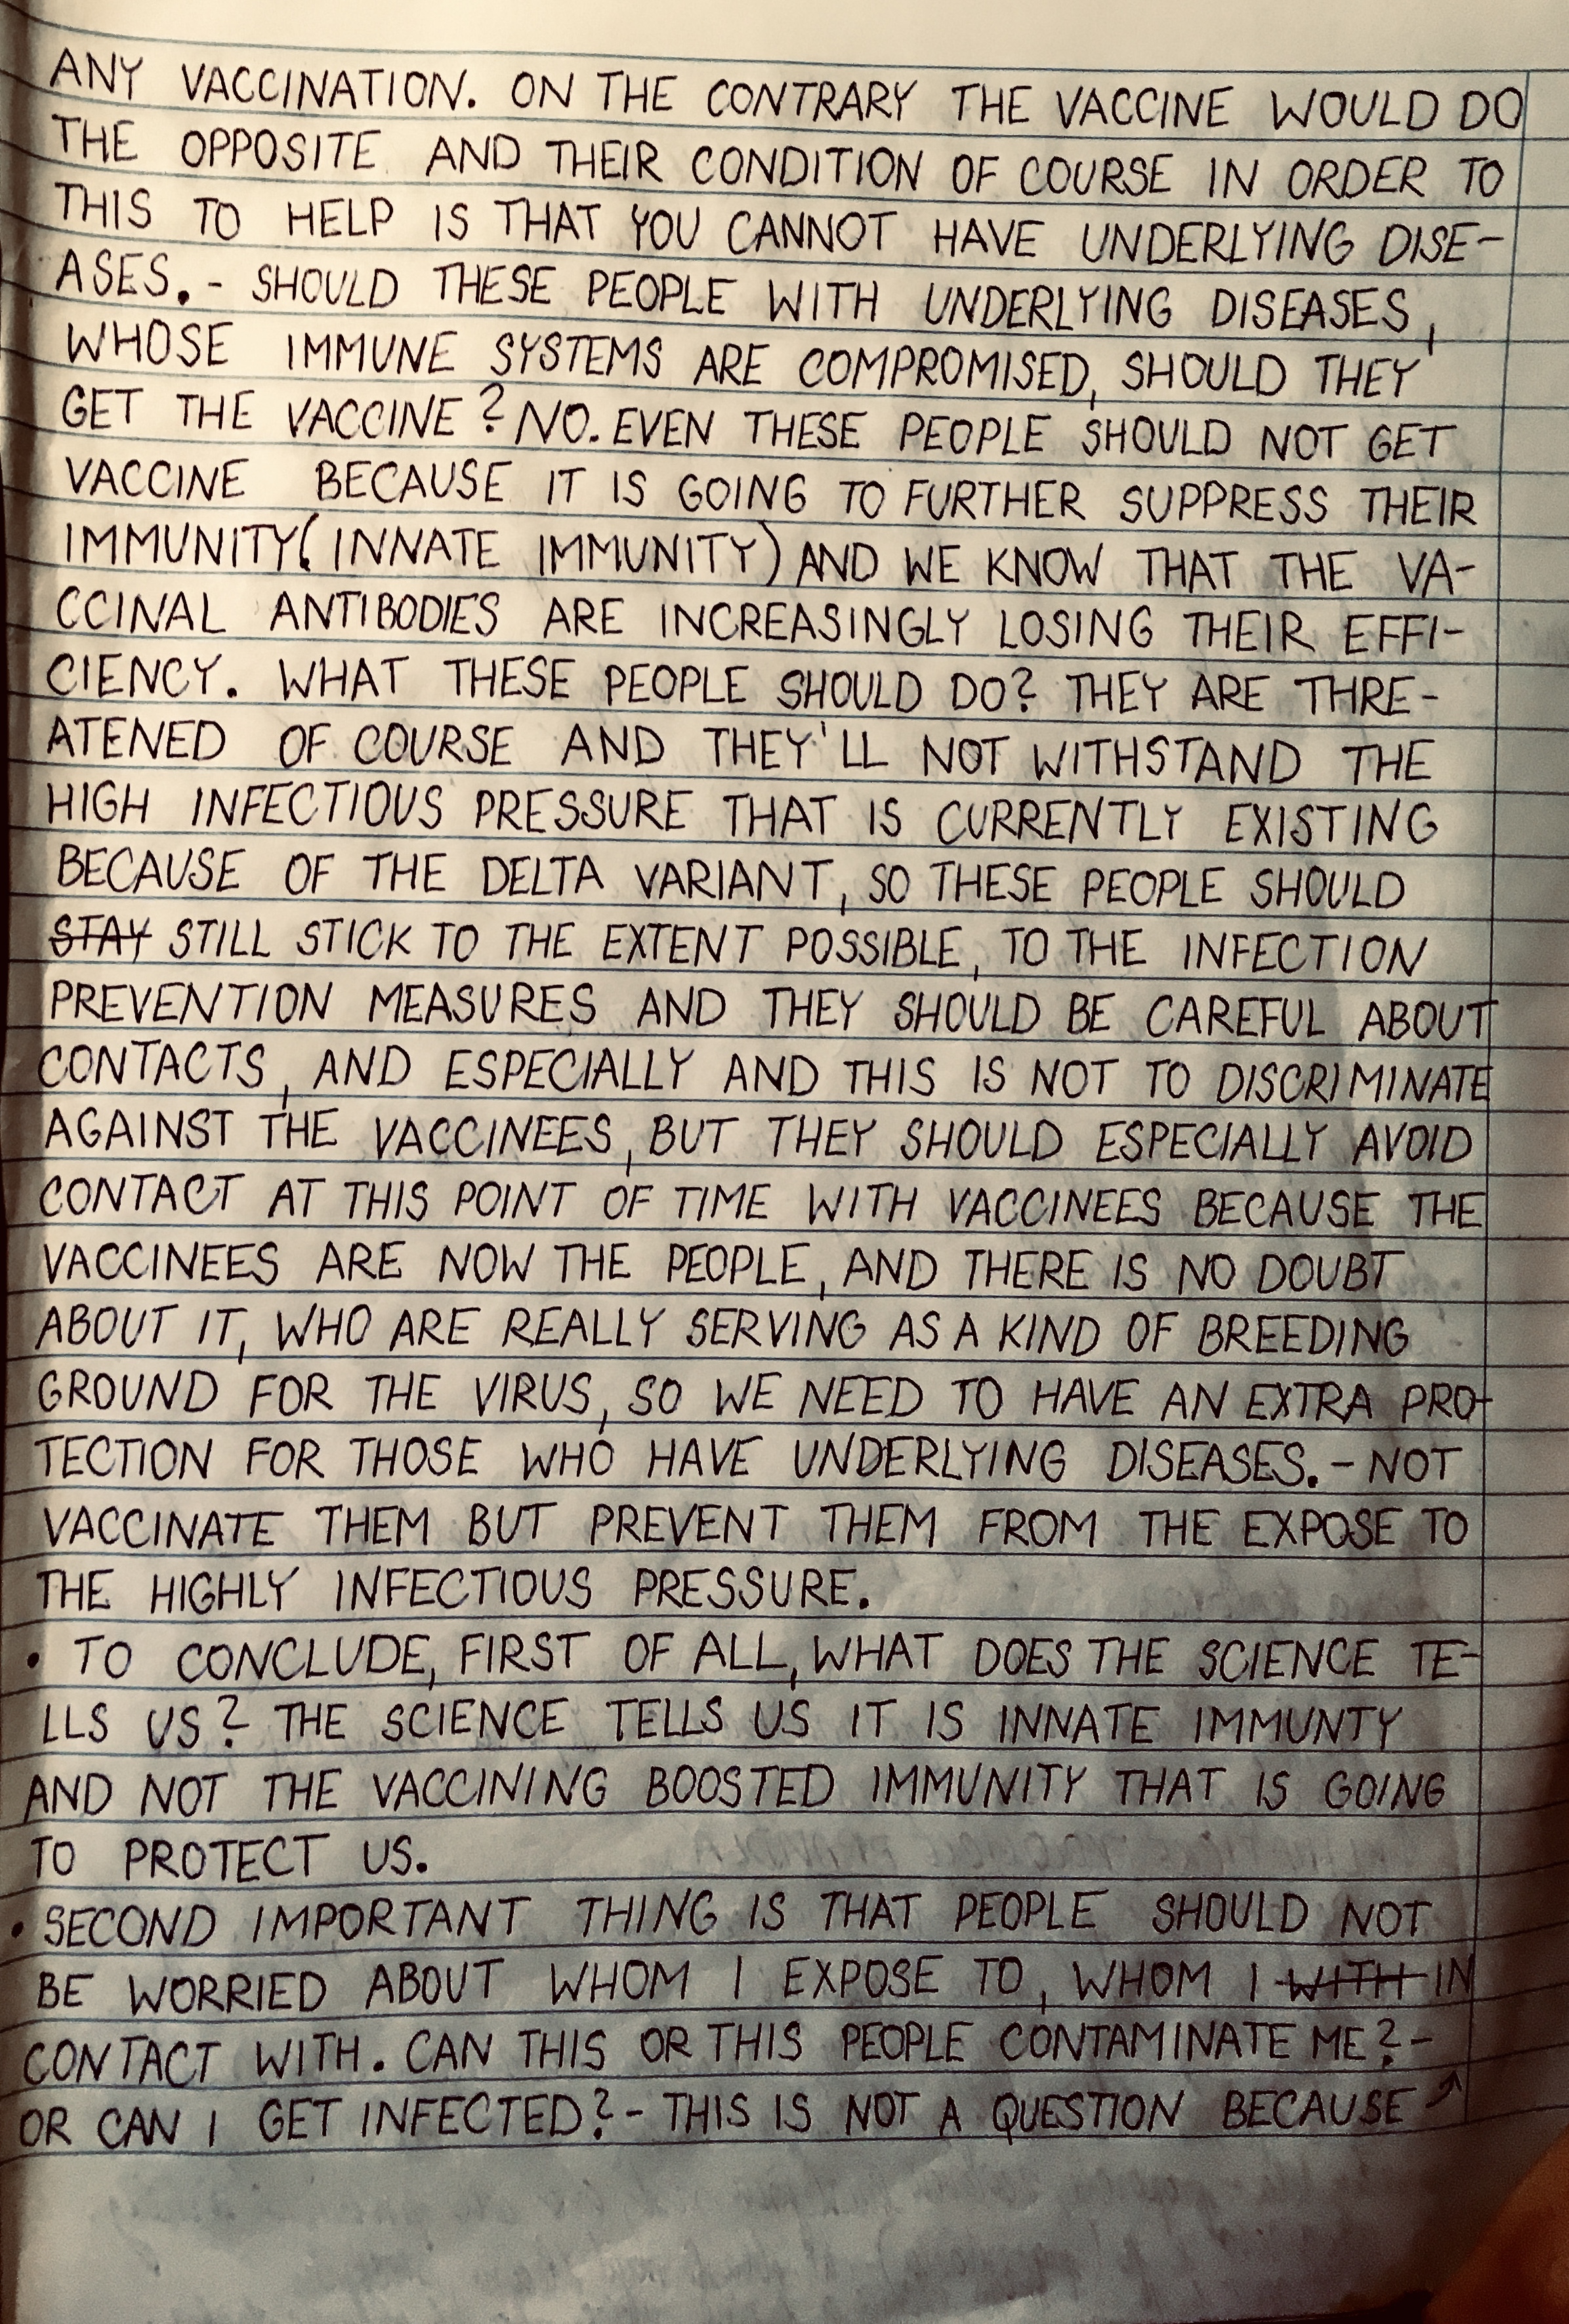 ANY VACCINATION. ON THE CONTRARY THE VACCINE WOULD DO
THE OPPOSITE AND THEIR CONDITION OF COURSE IN ORDER TO
THIS TO HELP IS THAT YOU CANNOT HAVE UNDERLYING DISE-
ASES. - SHOULD THESE PEOPLE WITH UNDERLYING DISEASES,
WHOSE IMMUNE SYSTEMS ARE COMPROMISED, SHOULD THEY
GET THE VACCINE? NO. EVEN THESE PEOPLE SHOULD NOT GET
VACCINE BECAUSE IT IS GOING TO FURTHER SUPPRESS THEIR
IMMUNITY (INNATE IMMUNITY) AND WE KNOW THAT THE VA-
CCINAL ANTIBODIES ARE INCREASINGLY LOSING THEIR EFFI-
CIENCY. WHAT THESE PEOPLE SHOULD DO? THEY ARE THRE-
ATENED OF COURSE AND THEY'LL NOT WITHSTAND THE
HIGH INFECTIOUS PRESSURE THAT IS CURRENTLY EXISTING
BECAUSE OF THE DELTA VARIANT, SO THESE PEOPLE SHOULD
STAY STILL STICK TO THE EXTENT POSSIBLE, TO THE INFECTION
PREVENTION MEASURES AND THEY SHOULD BE CAREFUL ABOUT
CONTACTS, AND ESPECIALLY AND THIS IS NOT TO DISCRIMINATE
AGAINST THE VACCINEES, BUT THEY SHOULD ESPECIALLY AVOID
CONTACT AT THIS POINT OF TIME WITH VACCINEES BECAUSE THE
VACCINEES ARE NOW THE PEOPLE, AND THERE IS NO DOUBT
ABOUT IT, WHO ARE REALLY SERVING AS A KIND OF BREEDING
GROUND FOR THE VIRUS, SO WE NEED TO HAVE AN EXTRA PRO-
TECTION FOR THOSE WHO HAVE UNDERLYING DISEASES. - NOT
VACCINATE THEM BUT PREVENT THEM FROM THE EXPOSE TO
THE HIGHLY INFECTIOUS PRESSURE.
• TO CONCLUDE, FIRST OF ALL, WHAT DOES THE SCIENCE TE-
LLS US? THE SCIENCE TELLS US IT IS INNATE IMMUNTY
AND NOT THE VACCINING BOOSTED IMMUNITY THAT IS GOING
TO PROTECT US.
• SECOND IMPORTANT THING IS THAT PEOPLE SHOULD NOT
BE WORRIED ABOUT WHOM I EXPOSE TO, WHOM I WITH IN
CONTACT WITH. CAN THIS OR THIS PEOPLE CONTAMINATE ME? -
OR CAN I GET INFECTED? - THIS IS NOT A QUESTION BECAUSE